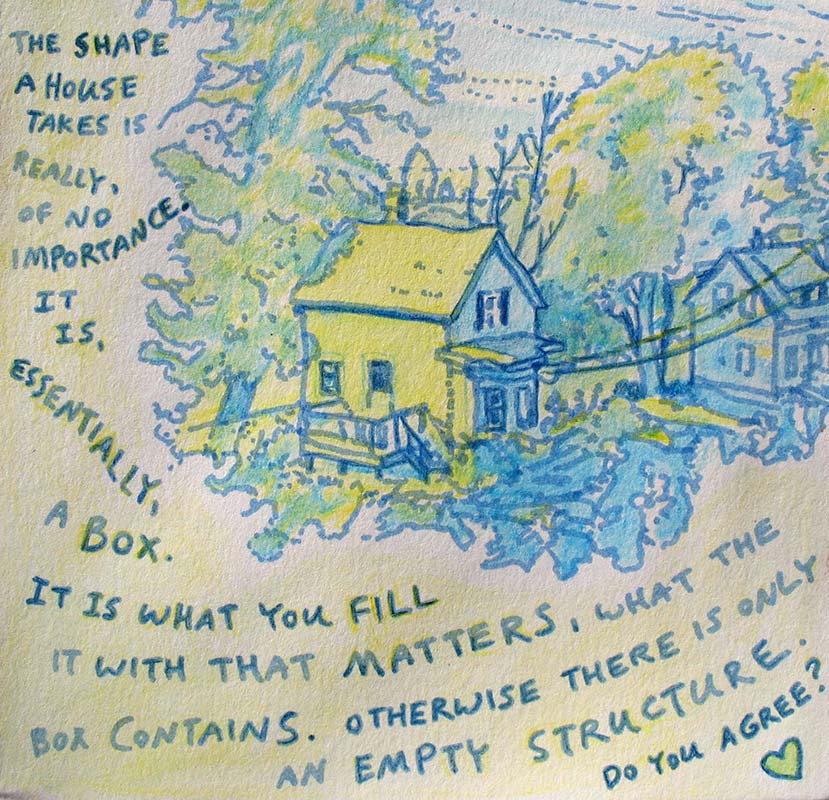 THE SHAPE
A HOUSE
TAKES IS
REALLY,
OF NO
IMPORTANCE.
IT
IS,
ESSENTIALLY,
A BOX.
IT IS WHAT YOU FILL
IT WITH THAT MATTERS, WHAT THE
BOX CONTAINS. OTHERWISE THERE IS ONLY
AN EMPTY STRUCTURE.
DO YOU AGREE?